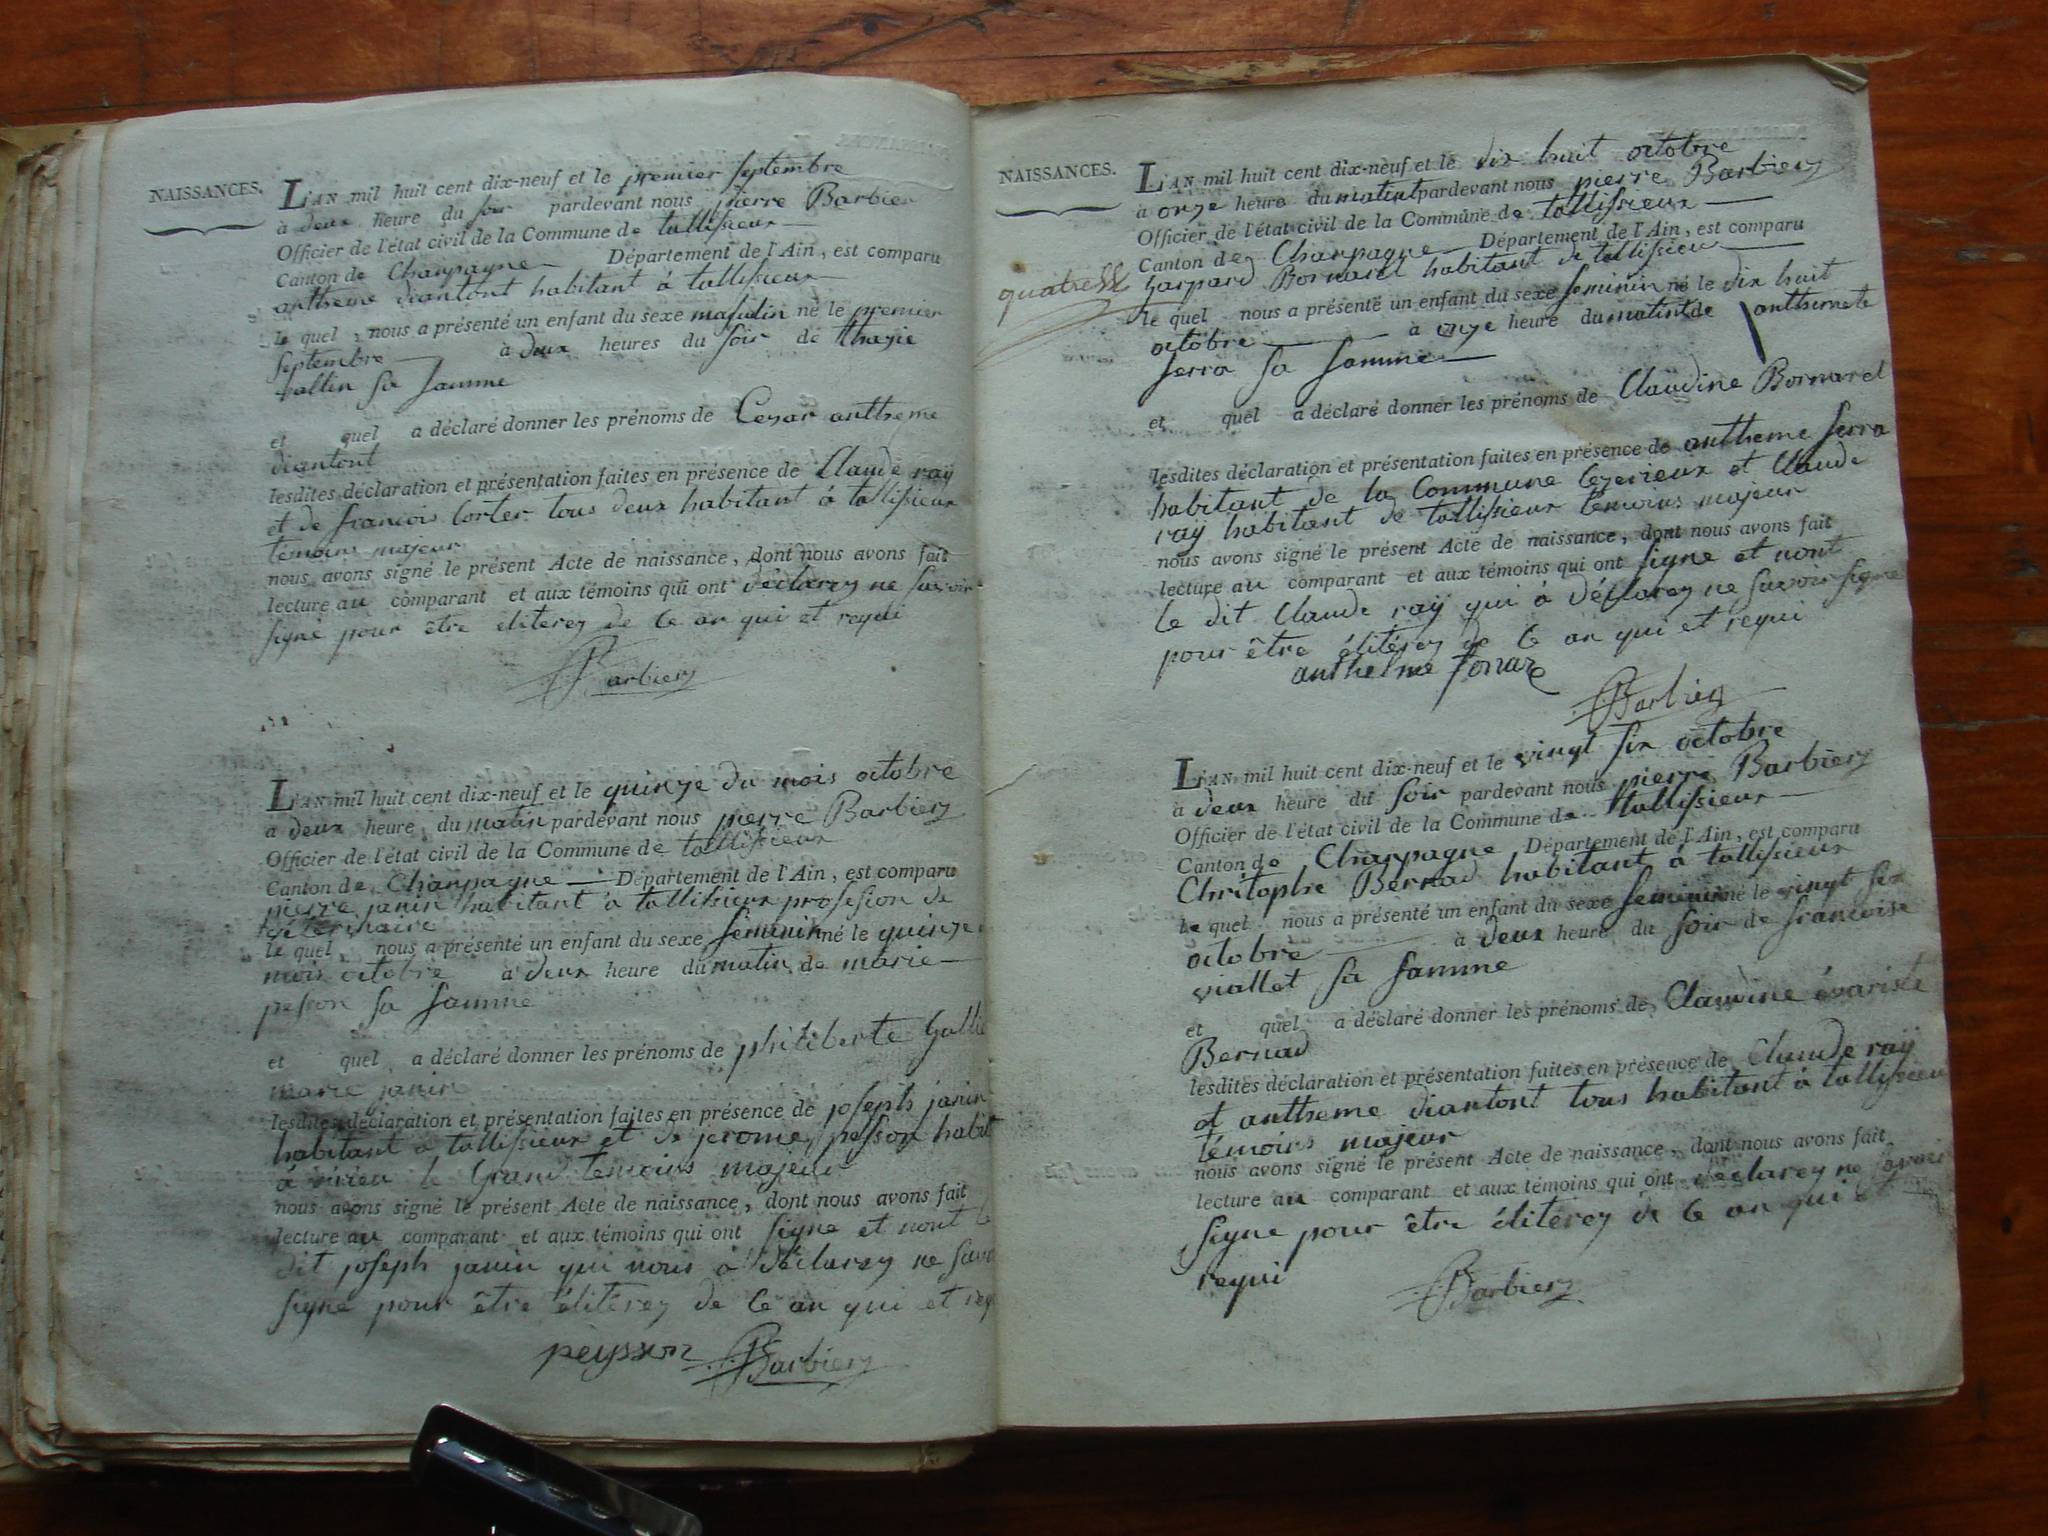 NAISSANCES.
L'AN mil huit cent dix-neuf et le premier septembre
à deux heure du soir pardevant nous pierre Barbier
Officier de l'état civil de la Commune de tallissieux
Canton de Chanpagne Département de l'Ain, est comparu
antheme diantont habitant à tallissieux
le quel, nous a présenté un enfant du sexe masculin né le premier
septembre à deux heures du soir de
vallin sa famme
et quel a déclaré donner les prénoms de Cesar antheme
diantont
lesdites déclaration et présentation faites en présence de Claude raÿ
et de francois Corter tous deux habitant à tallissieux
témoins majeur
nous avons signé le présent Acte de naissance, dont nous avons fait
lecture au comparant et aux témoins qui ont déclarez ne savoir
signé pour être éliterez de Ce an qui et requi
Barbierz
L'AN mil huit cent dix-neuf et le quinze du mois octobre
à deux heure du matin pardevant nous pierre Barbierz
Officier de l'état civil de la Commune de tallissieux
Canton de Chanpagne Département de l'Ain, est comparu
pierre janin habitant à tallissieux profession de
véterinaire
le quel, nous a présenté un enfant du sexe feminin né le quinze
mois octobre à deux heure du matin de marie
pesson sa famme
et quel a déclaré donner les prénoms de philiberte
marie janin
lesdites déclaration et présentation faites en présence de joseph janin
habitant à tallissieux et de jerome pesson habit
à virieu le Grand témoins majeur
nous avons signé le présent Acte de naissance, dont nous avons fait
lecture au comparant et aux témoins qui ont signe et nont le
dit joseph janin qui nous à déclarez ne
signé pour être éliterez de Ce an qui et
peysson Barbierz
NAISSANCES.
L'AN mil huit cent dix-neuf et le dix huit octobre
à onze heure du matint pardevant nous pierre Barbierz
Officier de l'état civil de la Commune de tallissieux
Canton de Chanpagne Département de l'Ain, est comparu
Gaspard Bornarel habitant de tallissieu
le quel nous a présenté un enfant du sexe feminin né le dix huit
octobre à onze heure du matint de
serra sa famme
et quel a déclaré donner les prénoms de Claudine Bornarel
lesdites déclaration et présentation faites en présence de antheme serra
habitant de la Commune Cezerieux et Claude
raÿ habitant de tallissieux témoins majeur
nous avons signé le présent Acte de naissance, dont nous avons fait
lecture au comparant et aux témoins qui ont signe et nont
le dit Claude raÿ qui à déclarez ne savoir signe
pour être élitérez de Ce an qui et requi
anthelme
Barbierz
L'AN mil huit cent dix-neuf et le vingt six octobre
à deux heure du soir pardevant nous pierre Barbierz
Officier de l'état civil de la Commune de tallissieux
Canton de Chanpagne Département de l'Ain, est comparu
Chritophe Bernad habitant à tallissieux
le quel nous a présenté un enfant du sexe feminin né le vingt six
octobre à deux heure du soir de francoise
viallet sa famme
et quel a déclaré donner les prénoms de Claudine évariste
Bernad
lesdites déclaration et présentation faites en présence de Claude raÿ
et antheme diantont tous habitant à tallissieu
témoins majeur
nous avons signé le présent Acte de naissance, dont nous avons fait
lecture au comparant et aux témoins qui ont déclarez ne
signe pour être éliterez de Ce an qui é
requi
Barbierz